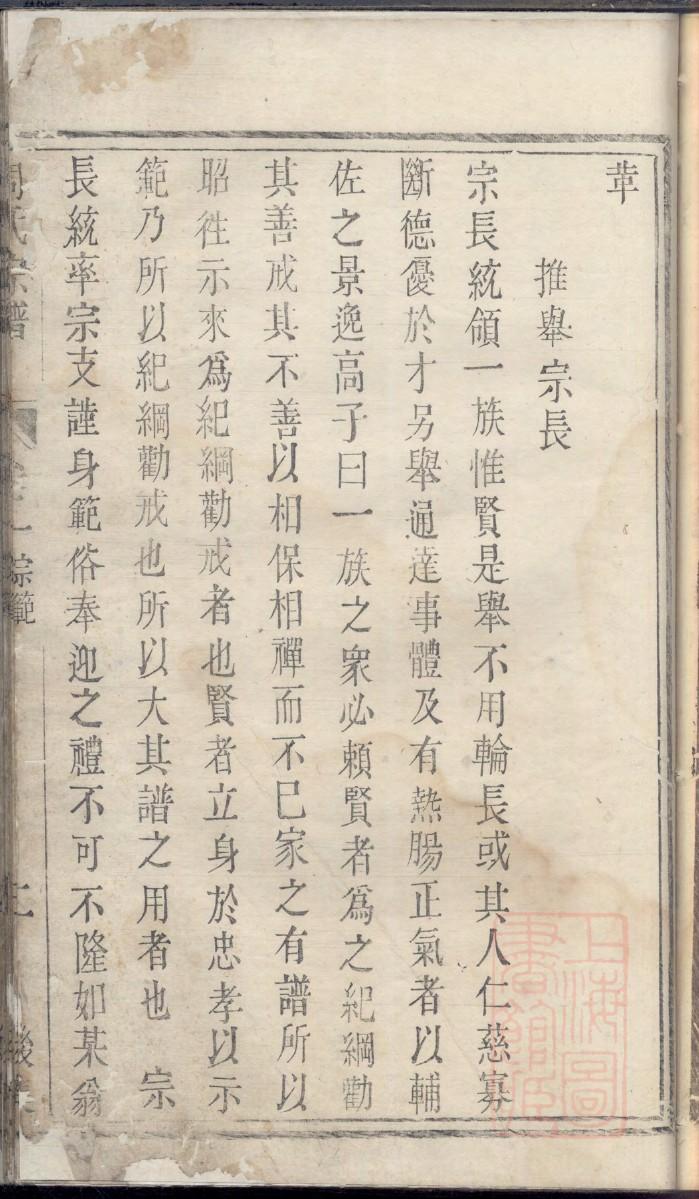 葦
推舉宗長
宗長統領一族惟賢是舉不用輪長或其人仁慈寡
斷德優於才另舉通達事體及有熱腸正氣者以輔
佐之景逸高子曰一族之衆必頼賢者爲之紀綱勸
其善戒其不善以相保相禪而不已家之有譜所以
昭徃示來爲紀綱勸戒者也賢者立身於忠孝以示
範乃所以紀綱勸戒也所以大其譜之用者也　宗
長統率宗支謹身範俗奉迎之禮不可不隆如某翁
周氏宗譜　卷一宗範
上海圖書館藏